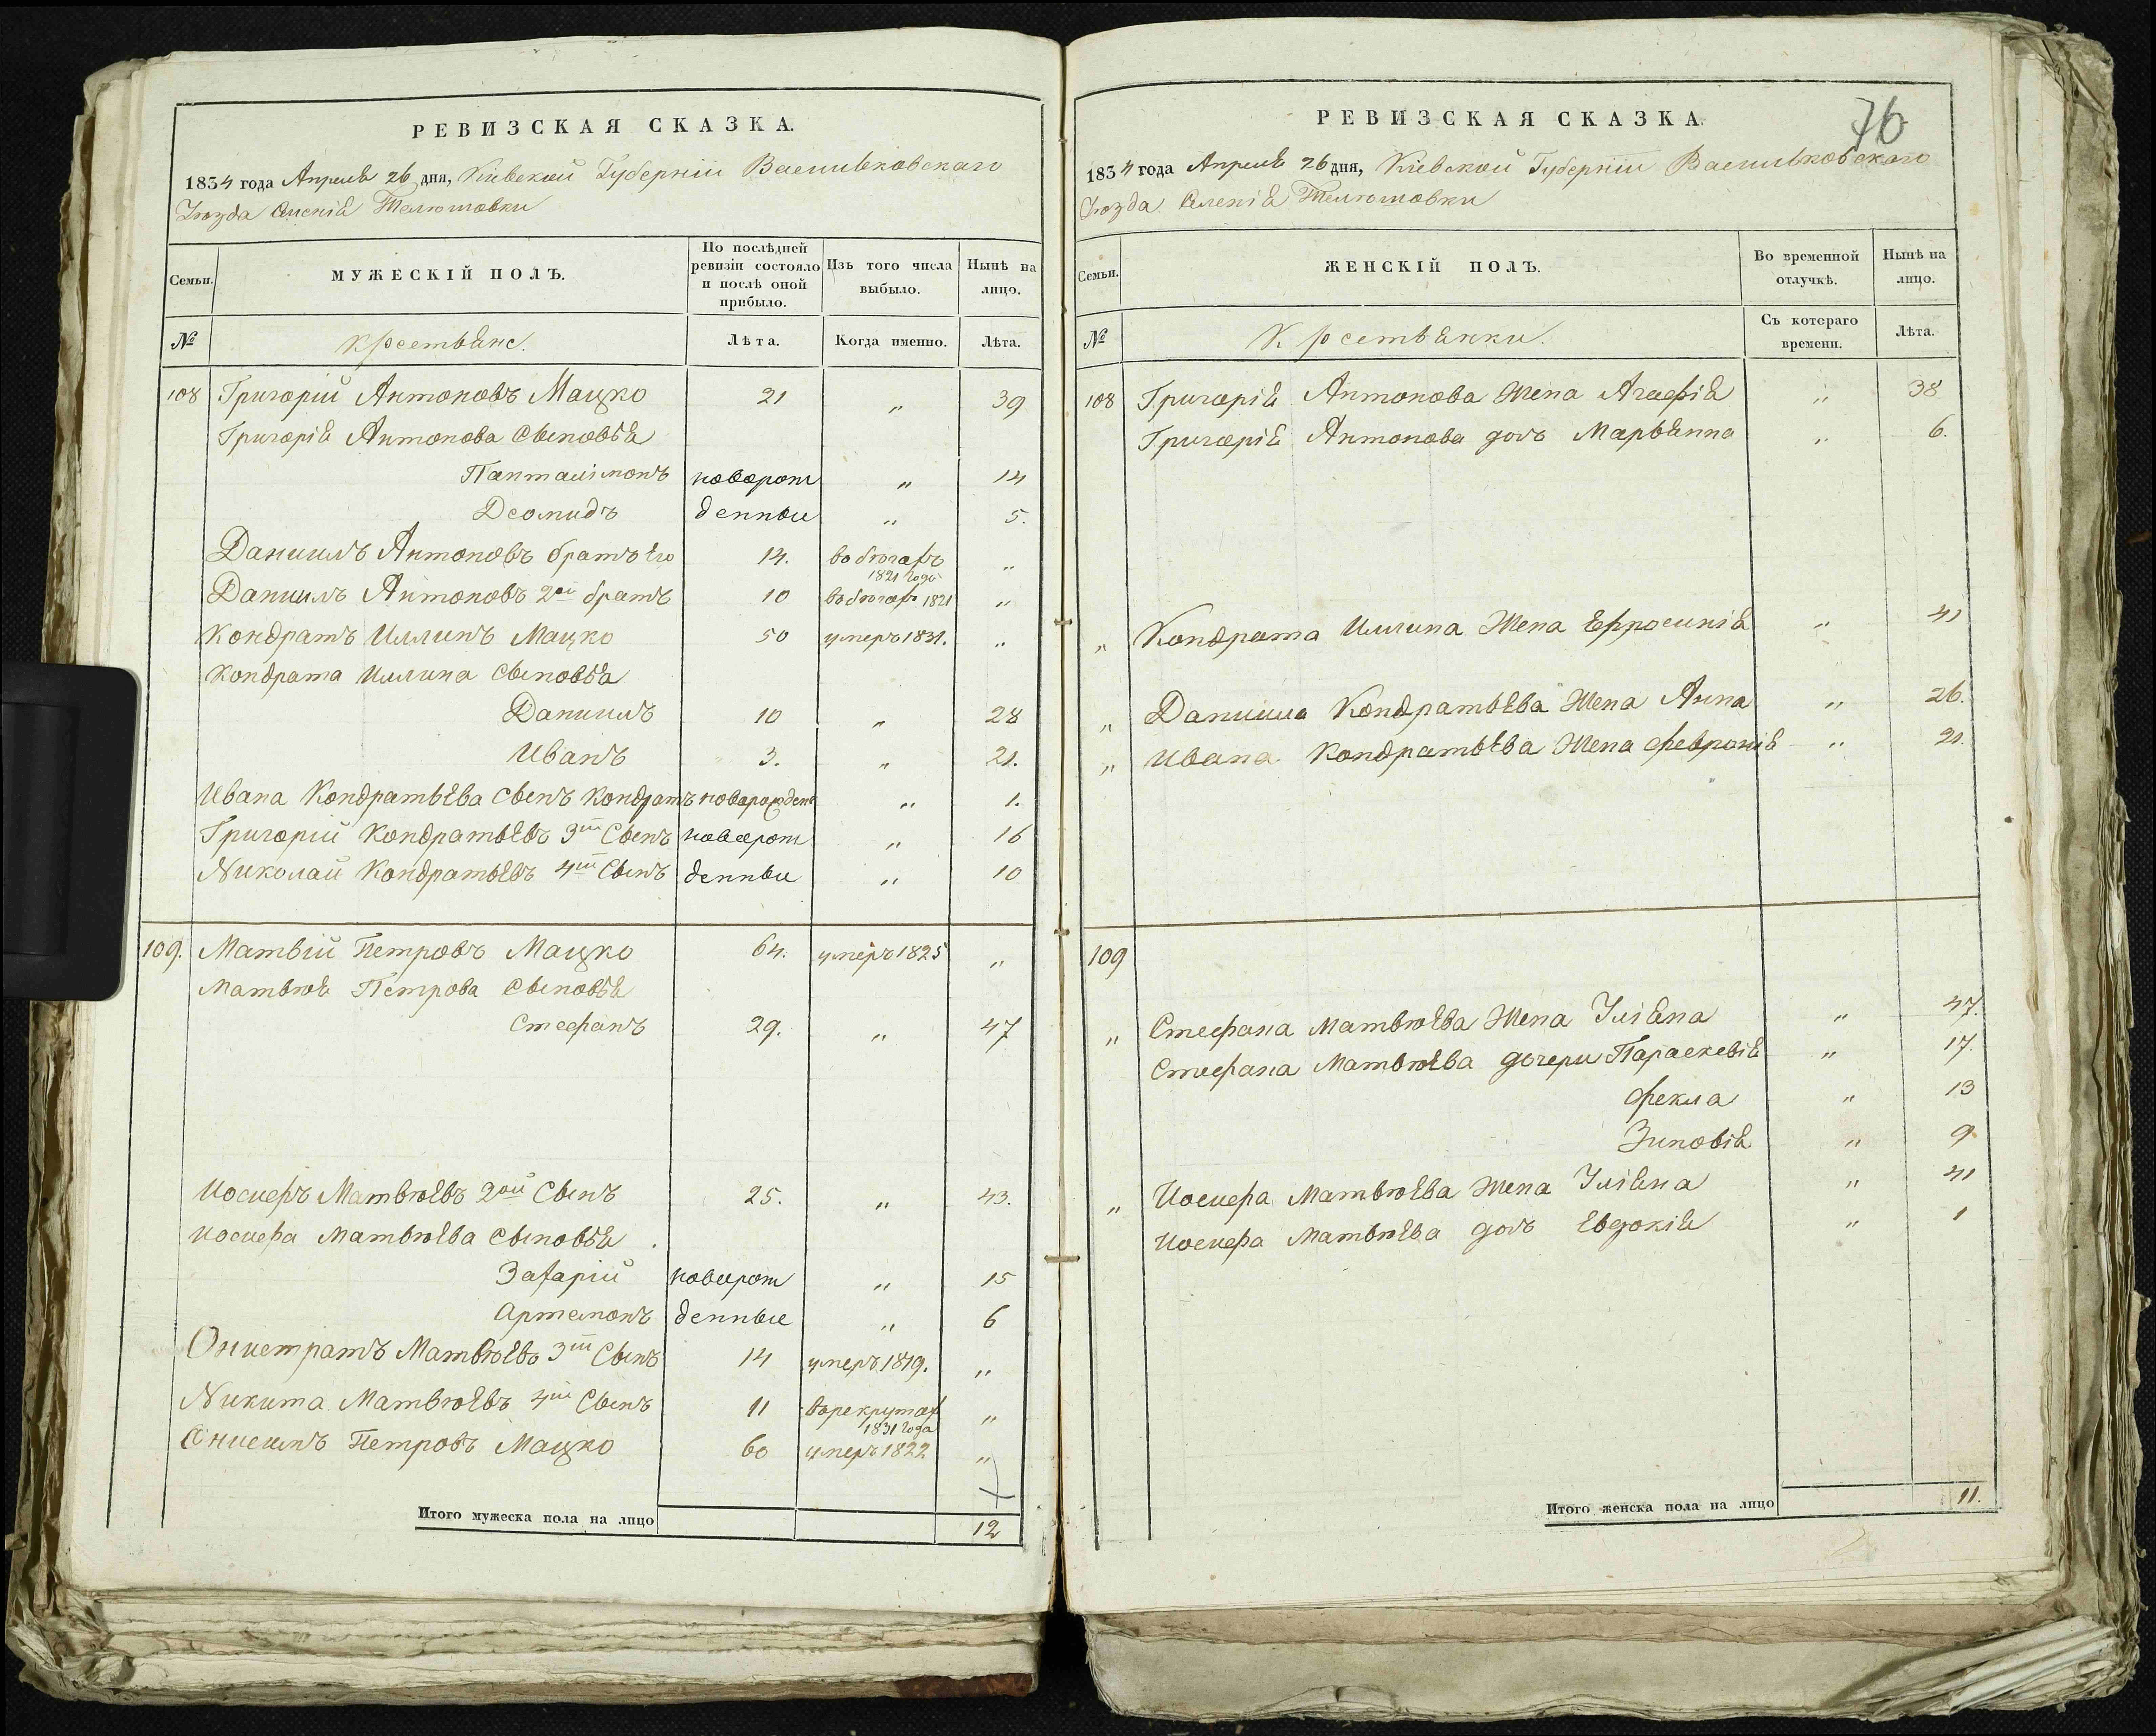 РЕВИЗСКАЯ СКАЗКА.
1834 года Апреля 26 дня, Кіевской Губерніи Васильковскаго
Уѣзда Селенія Телюшовки
Семьи.
МУЖЕСКІЙ ПОЛЪ.
По послѣдней ревизіи состояло и послѣ оной прибыло.
Изъ того числа выбыло.
Нынѣ на лицо.
№
Крестьяне.
Лѣта.
Когда именно.
Лѣта.
108 Григорій Антоновъ Мацко 21 „ 39
Григорія Антонова Сыновья
Панталімонъ новорож „ 14
Деомидъ денныи „ 5.
Даниилъ Антоновъ братъ Его 14. во бѣгахъ 1821 года „
Даниилъ Антоновъ 2ой братъ 10 во бѣгахъ 1821 „
Кондратъ Иллинъ Мацко 50 умеръ 1831. „
Кондрата Иллина Сыновья
Даниилъ 10 „ 28
Иванъ 3. „ 21.
Ивана Кондратьева Сынъ Кондратъ новорожден „ 1.
Григорій Кондратьевъ 3ій Сынъ новорож „ 16
Николай Кондратьевъ 4ій Сынъ денныи „ 10
109. Матвій Петровъ Мацко 64. умеръ 1825 „
Матвѣя Петрова Сыновья
Стефанъ 29. „ 47
Иосифъ Матвѣевъ 2ой Сынъ 25. „ 43.
Иосифа Матвѣева Сыновья
Захарій новорож „ 15
Артемонъ денные „ 6
Онистратъ Матвѣевъ 3ій Сынъ 14 умеръ 1819. „
Никита Матвѣевъ 4ій Сынъ 11 в рекрутах 1831 года „
Онисимъ Петровъ Мацко 60 умеръ 1822 „
Итого мужеска пола на лицо 12
76
РЕВИЗСКАЯ СКАЗКА.
1834 года Апреля 26 дня, Кіевской Губерніи Васильковскаго
Уѣзда Селенія Телюшовки
Семьи.
ЖЕНСКІЙ ПОЛЪ.
Во временной отлучкѣ.
Нынѣ на лицо.
№
Крестьянки.
Съ котораго времени.
Лѣта.
108 Григорія Антонова Жена Агафія „ 38
Григорія Антонова дочь Марьянна „ 6.
„ Кондрата Иллина Жена Ефросинія „ 41
„ Даниила Кондратьева Жена Анна „ 26.
„ Ивана Кондратьева Жена Февронія „ 21.
109
„ Стефана Матвѣева Жена Уліяна „ 47.
Стефана Матвѣева дочери Параскевія „ 17.
Фекла „ 13
Зиновія „ 9
„ Иосифа Матвѣева Жена Уліяна „ 41
Иосифа Матвѣева дочь Евдокія „ 1
Итого женска пола на лицо 11.